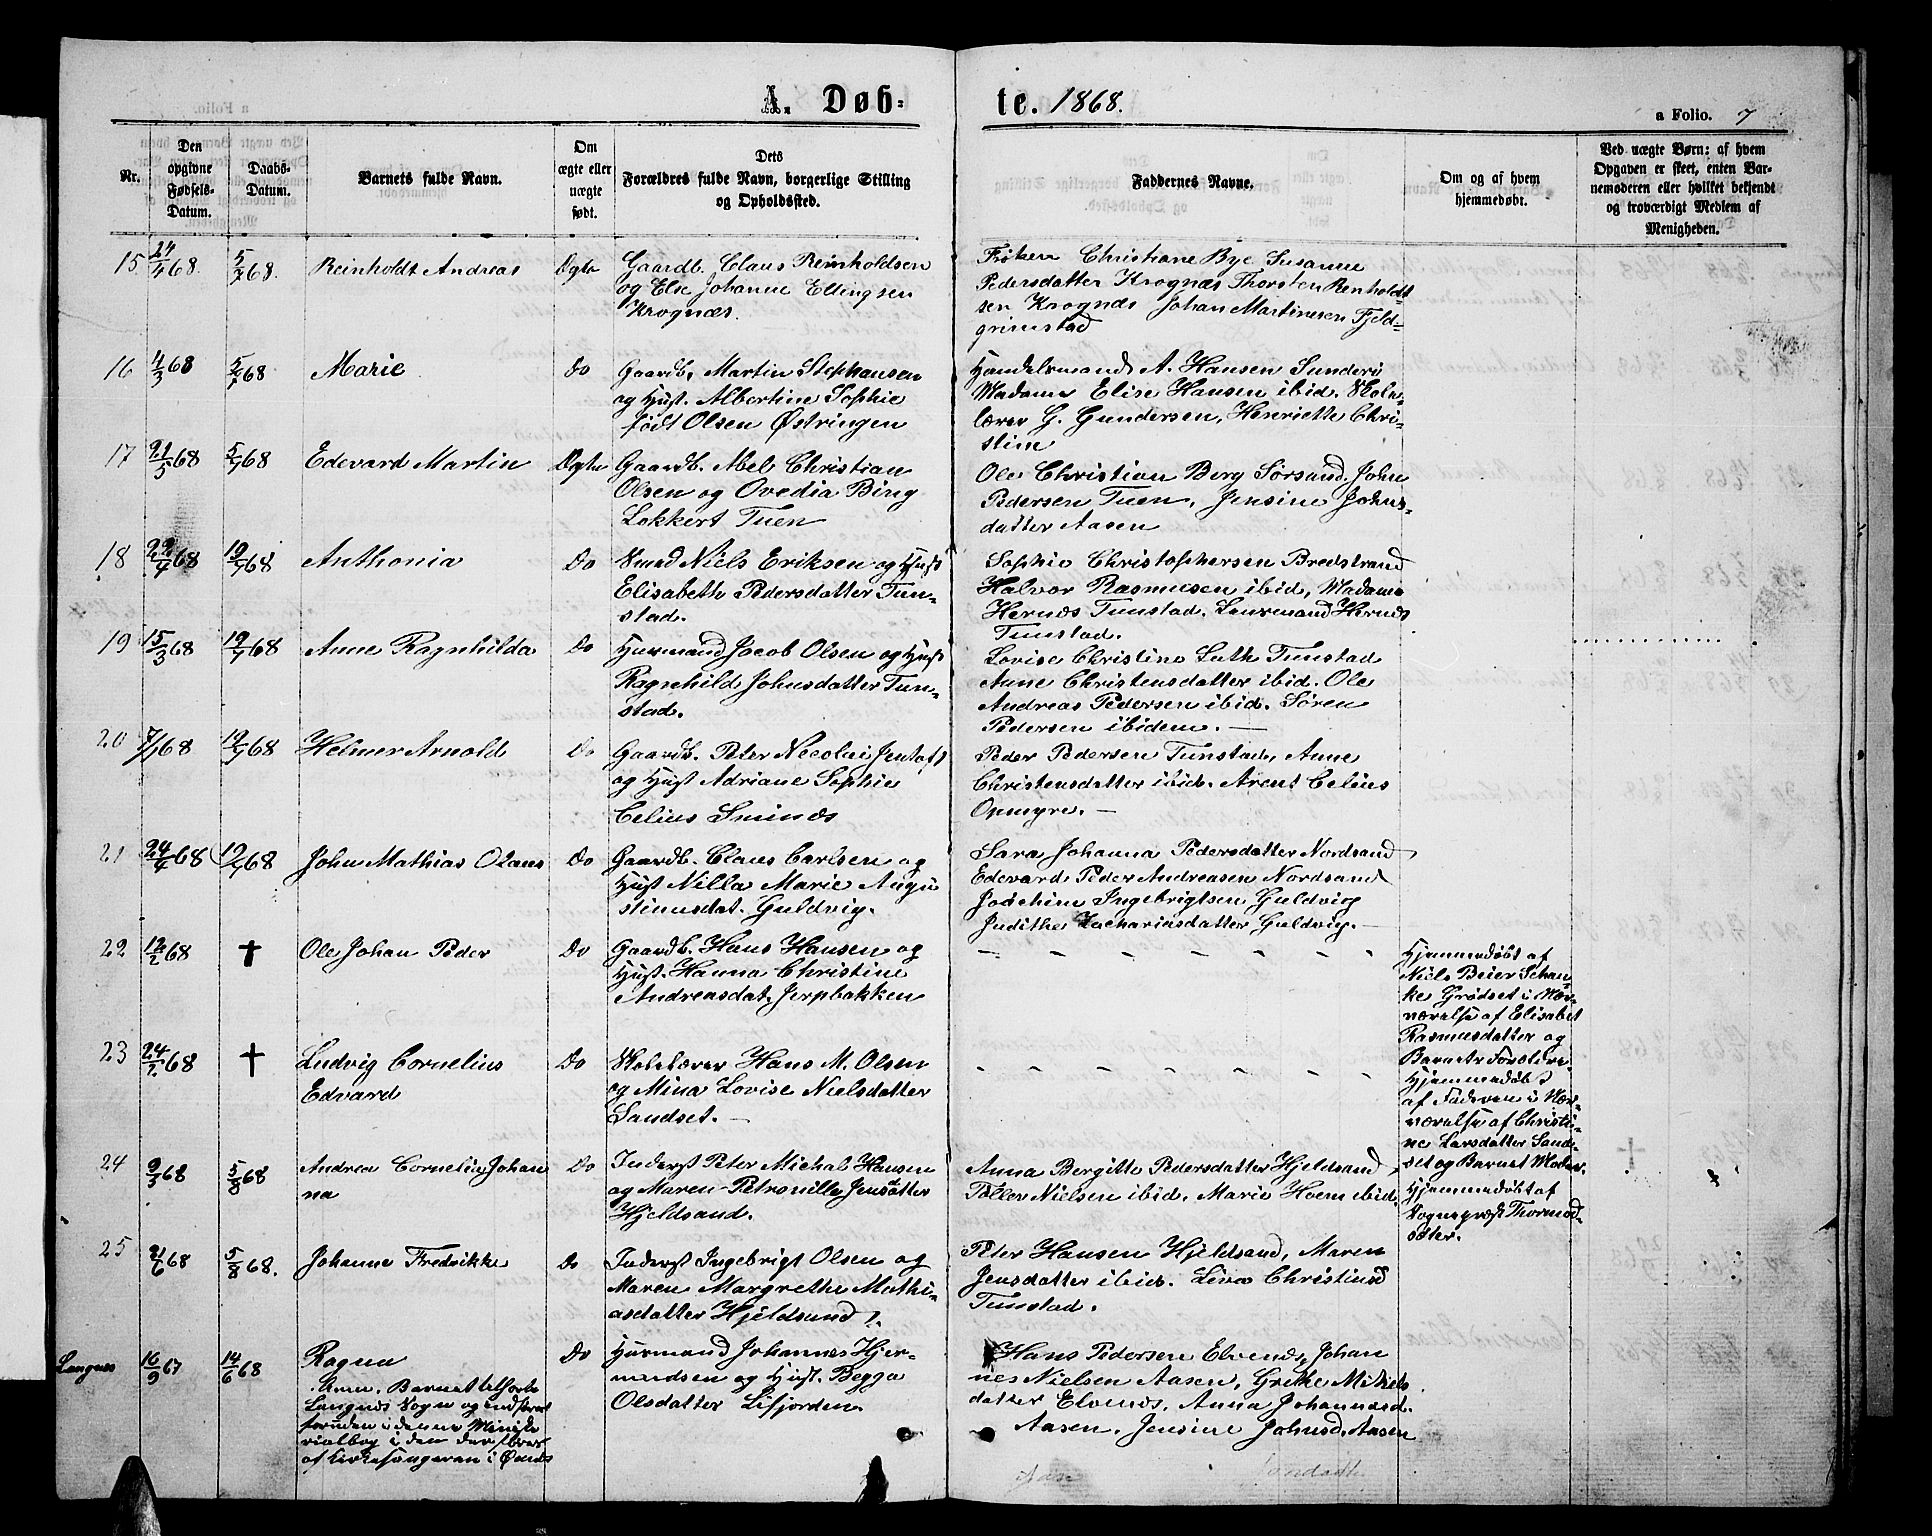 A. Døb-
te. 1868.
a Folio. 7
Nr.
Den
opgivne
Fødsels-
Datum.
Daabs-
Datum.
Barnets fulde Navn.
Om
ægte eller
uægte
født.
Dets
Forældres fulde Navn, borgerlige Stilling
og Opholdssted.
Faddernes Navne.
Om og af hvem
hjemmedøbt.
Ved uægte Børn: af hvem
Opgaven er skeet, enten Bar-
nemoderen eller hvilket bekjendt
og troværdigt Medlem af
Menigheden.
15 24/4 68. 5/7 68. Reinholdt Andreas Ægte
Gaardb. Claus Reinholdsen
og Else Johanne Ellingsen
Krognæs.
Frøken Christiane Bye Susanne
Pedersdatter Krognæs Thorsten Renholdt-
sen Krognæs Johan Martinusen Fjeld-
grimstad
16 4/3 68 5/7 68 Marie Do
Gaardb. Martin Stephansen
og Hust. Albertine Sophie
født Olsen Østringen
Handelsmand A. Hansen Sunderø
Madame Elise Hansen ibid. Skole-
lærer G. Gundersen, Henriette Chri-
stine
17 21/5 68 5/7 68 Edevard Martin Ægte
Gaardb. Abel Christian
Olsen og Ovedia Bing
Lokkert Tuen
Ole Christian Berg Sørsand, John
Pedersen Tuen, Jensine Johns-
datter Aasen
18 22/4 68 19/7 68 Anthonia Do
Smed Niels Eriksen og Hust
Elisabeth Pedersdatter Tun-
stad.
Sophie Christophersen Bredstrand
Halvor Rasmusen ibid, Madame
Hernes Tunstad. Lensmand Hernes
Tunstad.
19 15/3 68 19/7 68 Anne Ragnhilda Do
Husmand Jacob Olsen og Hust
Ragnhild Johnsdatter Tun-
stad.
Lovise Christine Luth Tunstad
Anne Christensdatter ibid. Ole
Andreas Pedersen ibid. Søren
Pedersen ibidem. —
20 7/1 68 19/7 68 Helmer Arnold Do
Gaardb. Peter Nicolai Jentoft
og Hust Adriane Sophie
Celius Sminæs
Peder Pedersen Tunstad, Anne
Christensdatter ibid. Arent Celius
Opmyre. —
21 24/4 68 19/7 68 John Mathias Olaus Do
Gaardb. Claus Carlsen og
Hust Nilla Marie Augu
stinusdat. Guldvig.
Sara Johanna Pedersdatter Nordsand
Edevard Peder Andreasen Nordsand
Joachim Ingebrigtsen Guldvig
Judithe Zachariasdatter Guldvig. —
22 12/2 68 † Ole Johan Peder Do
Gaardb. Hans Hansen og
Hust. Hanna Christine
Andreasdat. Jerpbakken
Hjemmedøbt af
Niels Beier Schan-
ke Grødset i Nær-
værelse af Elisabet
Rasmusdatter og
Barnets Forældre.
23 24/7 68 † Ludvig Cornelius
Edvard
Do
Skolelærer Hans M. Olsen
og Mina Lovise Nielsdatter
Sandset. —
Hjemmedøbt
af Faderen i Nær-
værelse af Christi-
ne Larsdatter Sand-
set og Barnets Moder.
24 9/3 68 5/8 68 Andrea Cornelia Johan
na
Do
Inderst Peter Michal Hansen
og Maren Petronilla Jensdatter
Hjeldsand.
Anna Bergitte Pedersdatter Hjeldsand,
Toller Nielsen ibid. Marie Hoem ibid.
Hjemmedøbt af
Sognepræst Thormod-
sæter.
25 21/6 68 5/8 68. Johanne Fredrikke Do
Inderst Ingebrigt Olsen og
Maren Margrethe Mathi-
asdatter Hjeldsand.
Peter Hansen Hjeldsand, Maren
Jensdatter ibid. Lina Christiand
Tunstad.
Langnes 16/9 67 14/6 68 Ragna
Anm. Barnet tilhører
Langnes Sogn og indføres
foruden i denne Ministe
rialbog i den der føres
af Kirkesangeren i Øxnes
Do
Husmand Johannes Hjer-
mundsen og Hust. Begga
Olsdatter Lifjorden.
Hans Pedersen Elvenes, Johan
nes Nielsen Aasen, Grethe Mikels
datter Elvenes, Anna Johannesd.
Aasen, Jensine Johnsd. Aasen